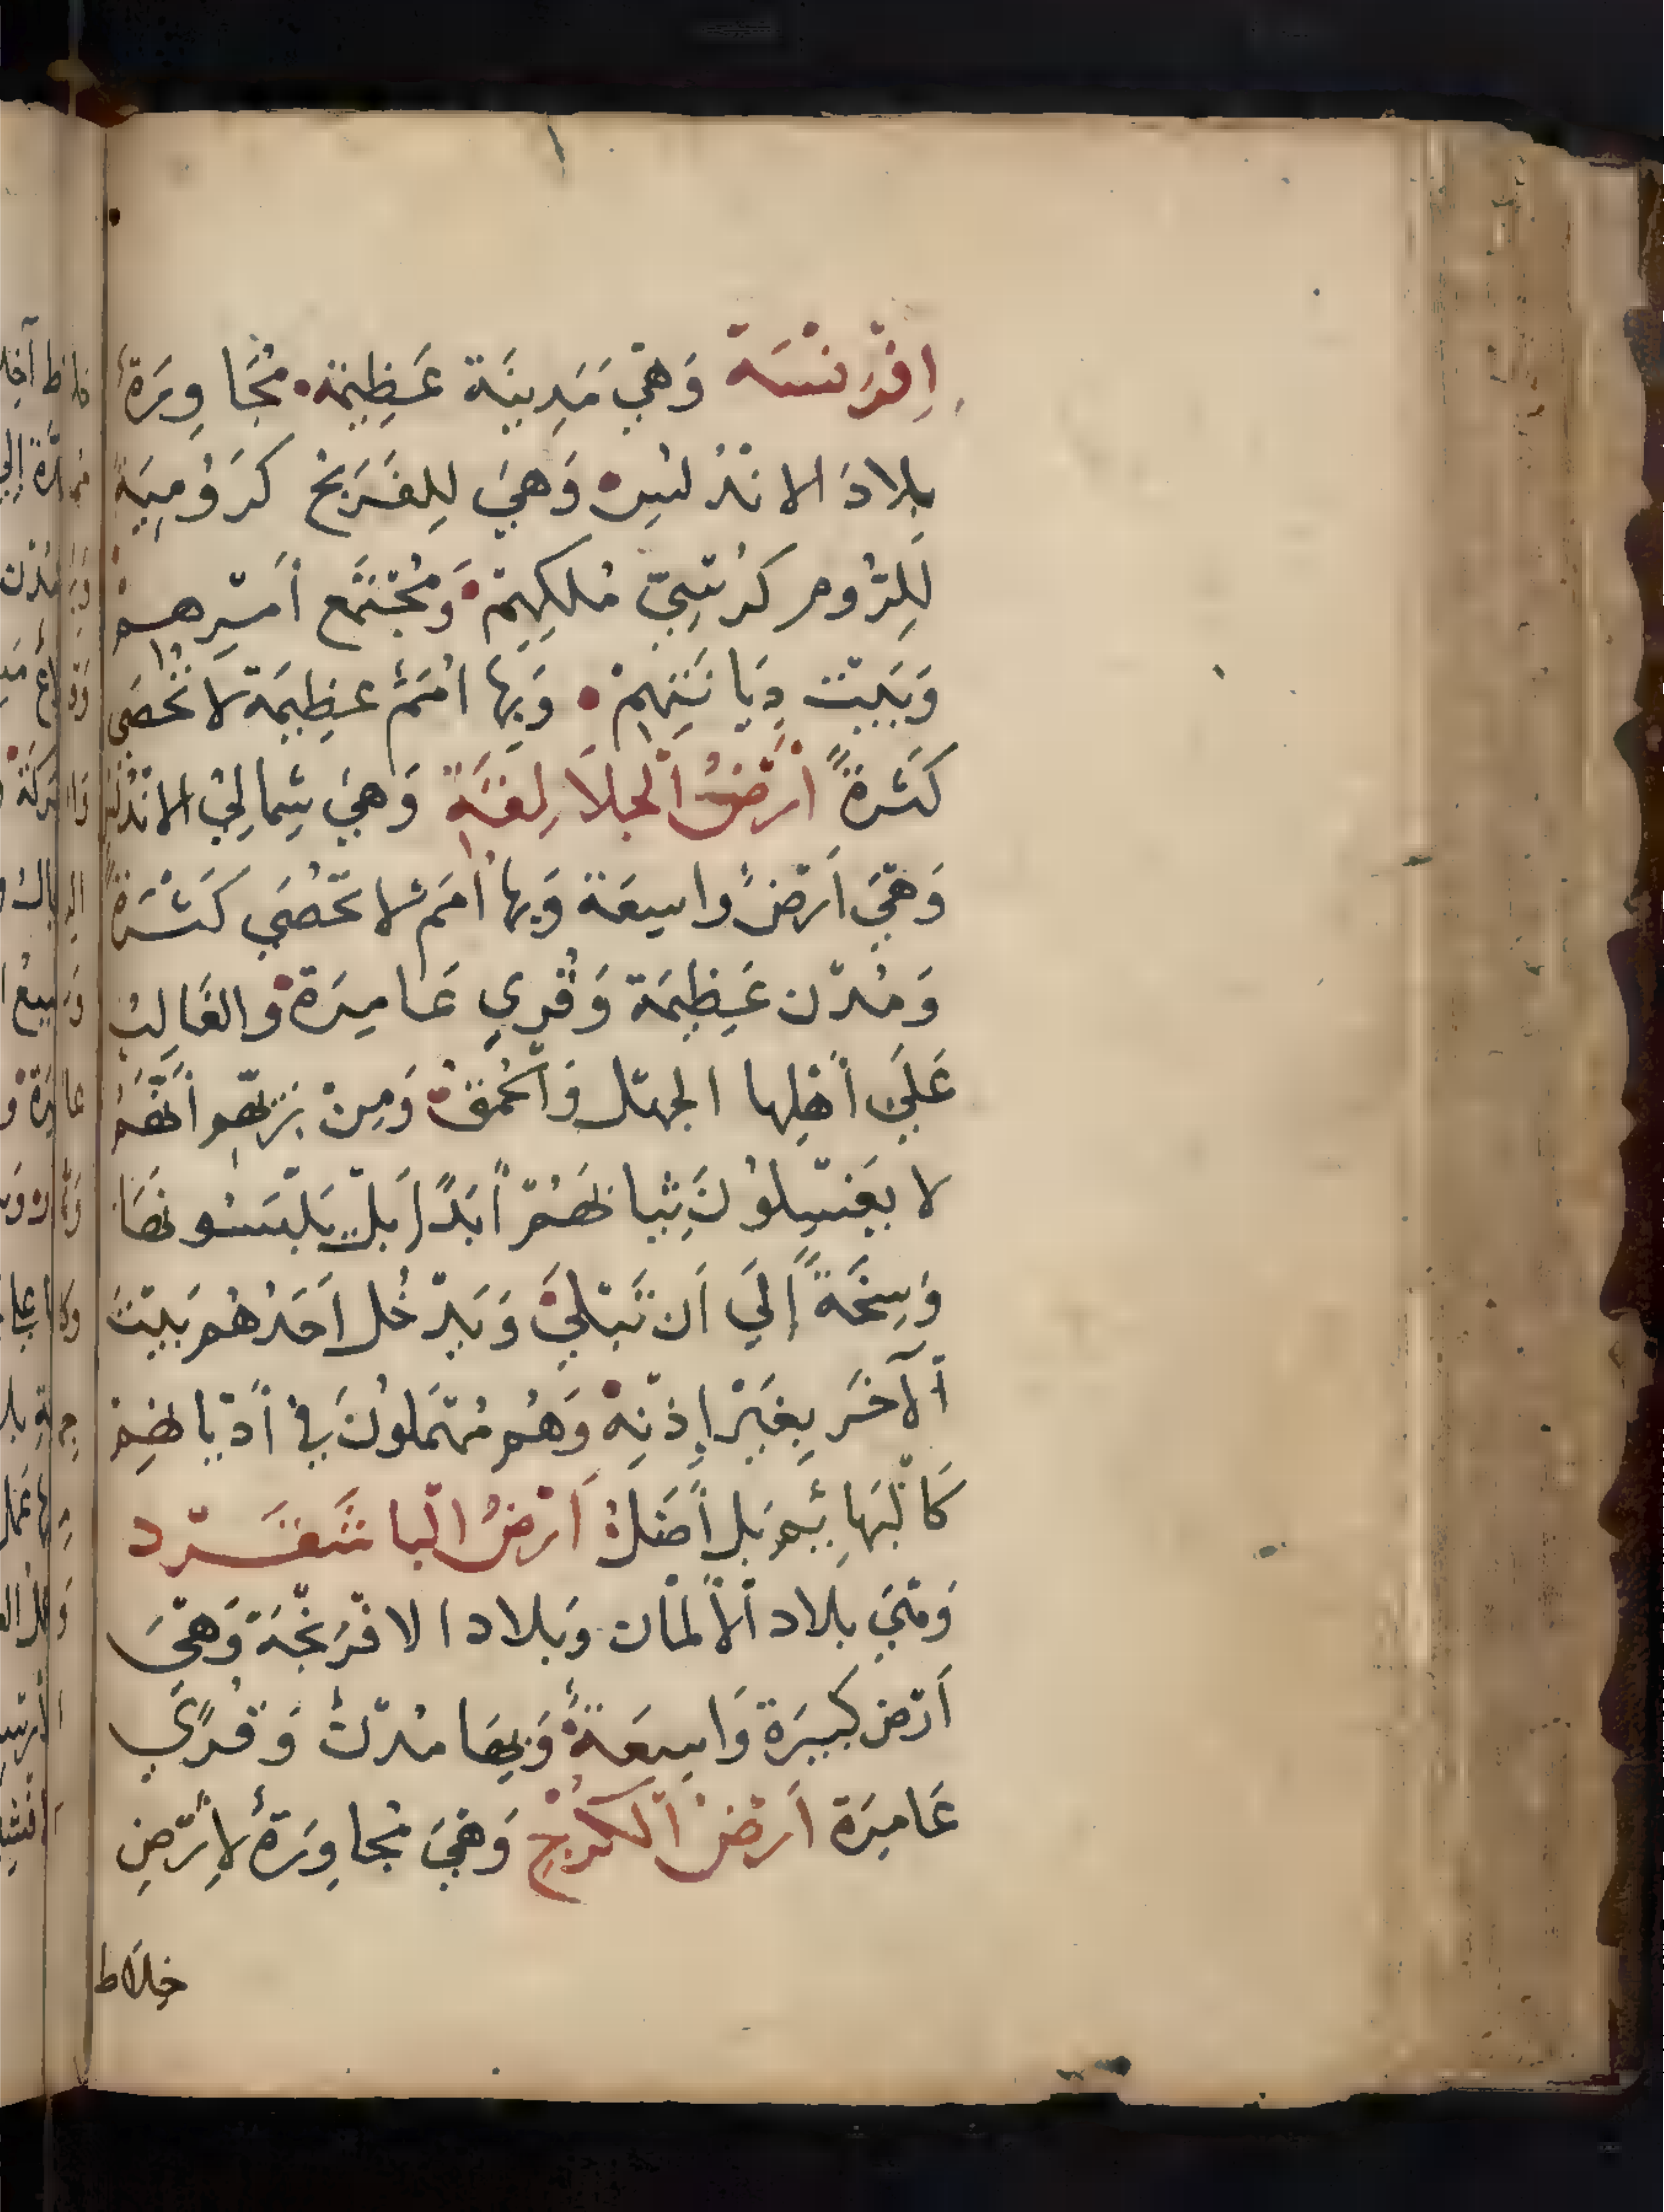 اِفْرَنْسَة وَهْيَ مَدِينَة عَظِيمَة مُجَاوِرَةٌ
بِلادَ الانْدُلُس وَهيَ لِلفَرَنج كَرُومِيَة
لِلرُّومِ كُرْسِيّ مُلكِهِمْ وَمُجْتَمَع أمْرِهِمْ
وَبَيْت دِيَانَتِهِمْ وَبِهَا اُمَمٌ عظِيمَة لا تُحْصَي
كَثرَةً أَرْضُ اَلْجلاَلِقَةِ وَهيَ شِمالِيْ الانْدُلُس
وَهْيَ اَرْضٌ واسِعَة وَبها اُمَم لا تُحْصَي كَثْرَةً
وَمُدْن عَظِيمَة وَقُري عَامِرَة والغَالِبُ
عَلَيَ أهْلِها الجهْل وَاَلحُمْقُ وَمِنْ زِيّهِم أنَّهُمُ
لا يَغسِلُونَ ثِيابَهُمْ أبَدًا بَلْ يَلْبَسُونهَا
وَسِخَةً إِلَيَ اَن تَبْلَيَ وَيَدْخُل اَحَدُهُم بَيْتَ
اَلآخَر بِغَيْر إِذْنِهْ وَهُم مُهْمَلُونَ فِي أدْيانِهِمْ
كَاْلبَهائِم بَل أضَلُّ اَرْضُ الْباشَقَرْد
وَهْيَ بلاد اَلْألمَان وَبلاد الافْرَنْجَة وَهْيَ
اَرْض كَبِيرَة وَاسِعَةٌ وَبِهَا مُدْنٌ وَقُرًي
عَامِرَة اَرْضُ اَلكُرْجِ وَهْيَ مُجاوِرَةٌ لِأَرْضِ
خلاَط